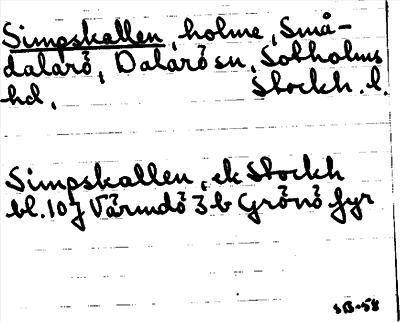 Simpskallen, holme, Små-
dalarö, Dalarö sn, Sotholms
hd, Stockh. l.
Simpskallen, ek Stockh
bl. 10 J Värmdö 3 b Grönö fyr
SB-58